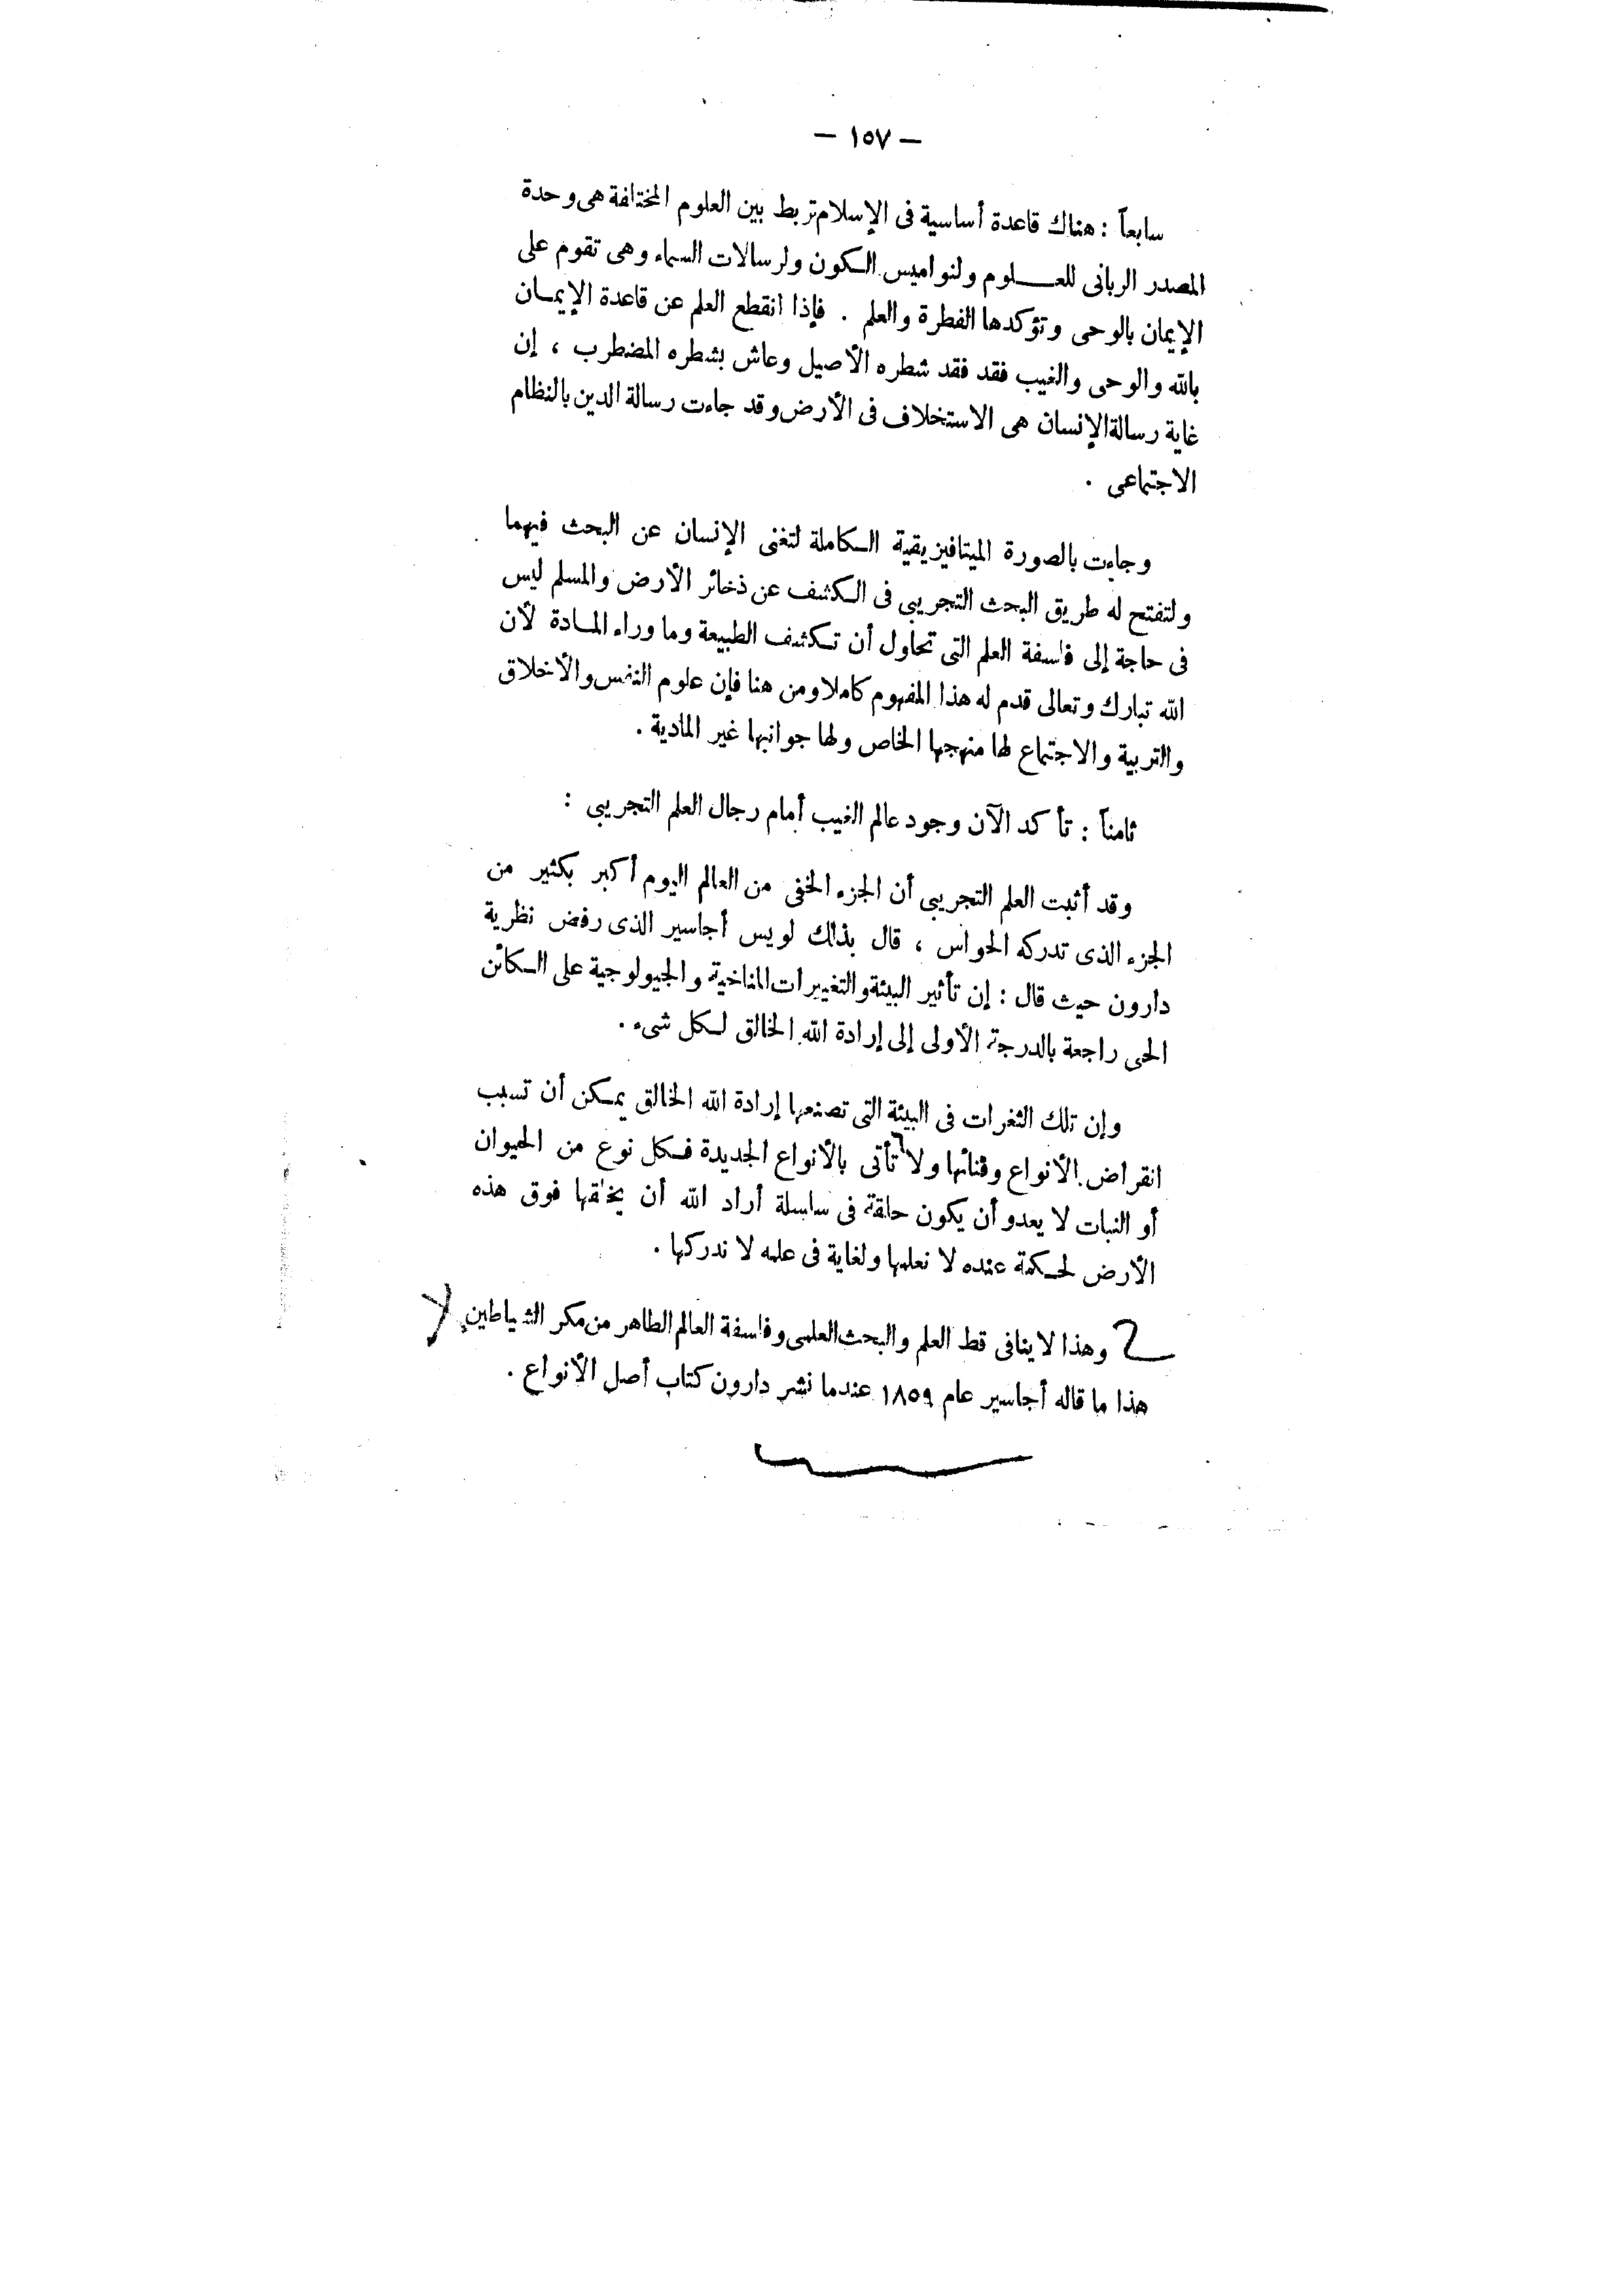 — ١٥٧ —
سابعاً : هناك قاعدة أساسية فى الإسلام تربط بين العلوم المختلفة هى وحدة
المصدر الربانى للعلوم ولنواميس الكون ولرسالات السماء وهى تقوم على
الإيمان بالوحى وتؤكدها الفطرة والعلم . فإذا انقطع العلم عن قاعدة الإيمان
بالله والوحى والغيب فقد فقد شطره الأصيل وعاش بشطره المضطرب ، إن
غاية رسالة الإنسان هى الاستخلاف فى الأرض وقد جاءت رسالة الدين بالنظام
الاجتماعى .
وجاءت بالصورة الميتافيزيقية الكاملة لتغنى الإنسان عن البحث فيهما
ولتفتح له طريق البحث التجريبى فى الكشف عن ذخائر الأرض والمسلم ليس
فى حاجة إلى فلسفة العلم التى تحاول أن تكشف الطبيعة وما وراء المادة لأن
الله تبارك وتعالى قدم له هذا المفهوم كاملا ومن هنا فإن علوم النفس والأخلاق
والتربية والاجتماع لها منهجها الخاص ولها جوانبها غير المادية .
ثامناً : تأكد الآن وجود عالم الغيب أمام رجال العلم التجريبى :
وقد أثبت العلم التجريبى أن الجزء الخفى من العالم اليوم أكبر بكثير من
الجزء الذى تدركه الحواس ، قال بذلك لويس أجاسير الذى رفض نظرية
دارون حيث قال : إن تأثير البيئة والتغييرات المناخية والجيولوجية على الكائن
الحى راجعة بالدرجة الأولى إلى إرادة الله الخالق لكل شىء .
وإن تلك الثغرات فى البيئة التى تصنعها إرادة الله الخالق يمكن أن تسبب
انقراض الأنواع وفنائها ولا تأتى بالأنواع الجديدة فكل نوع من الحيوان
أو النبات لا يعدو أن يكون حلقة فى سلسلة أراد الله أن يخلقها فوق هذه
الأرض لحكمة عنده لا نعلمها ولغاية فى علمه لا ندركها .
وهذا لا ينافى قط العلم والبحث العلمى وفلسفة العالم الطاهر من مكر الشياطين
هذا ما قاله أجاسير عام ١٨٥٩ عندما نشر دارون كتاب أصل الأنواع .